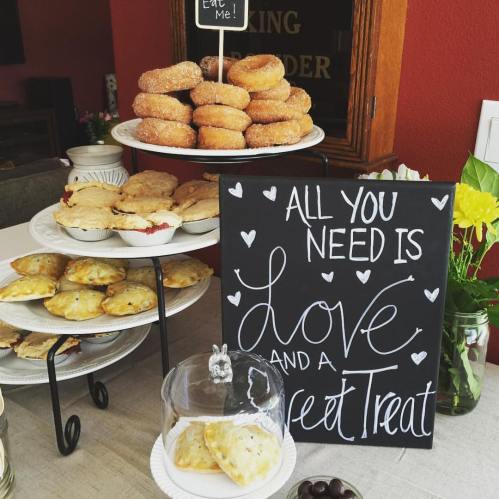 Eat
Me!
KING
DER
ALL YOU
NEED IS
Love
AND A
Sweet Treat